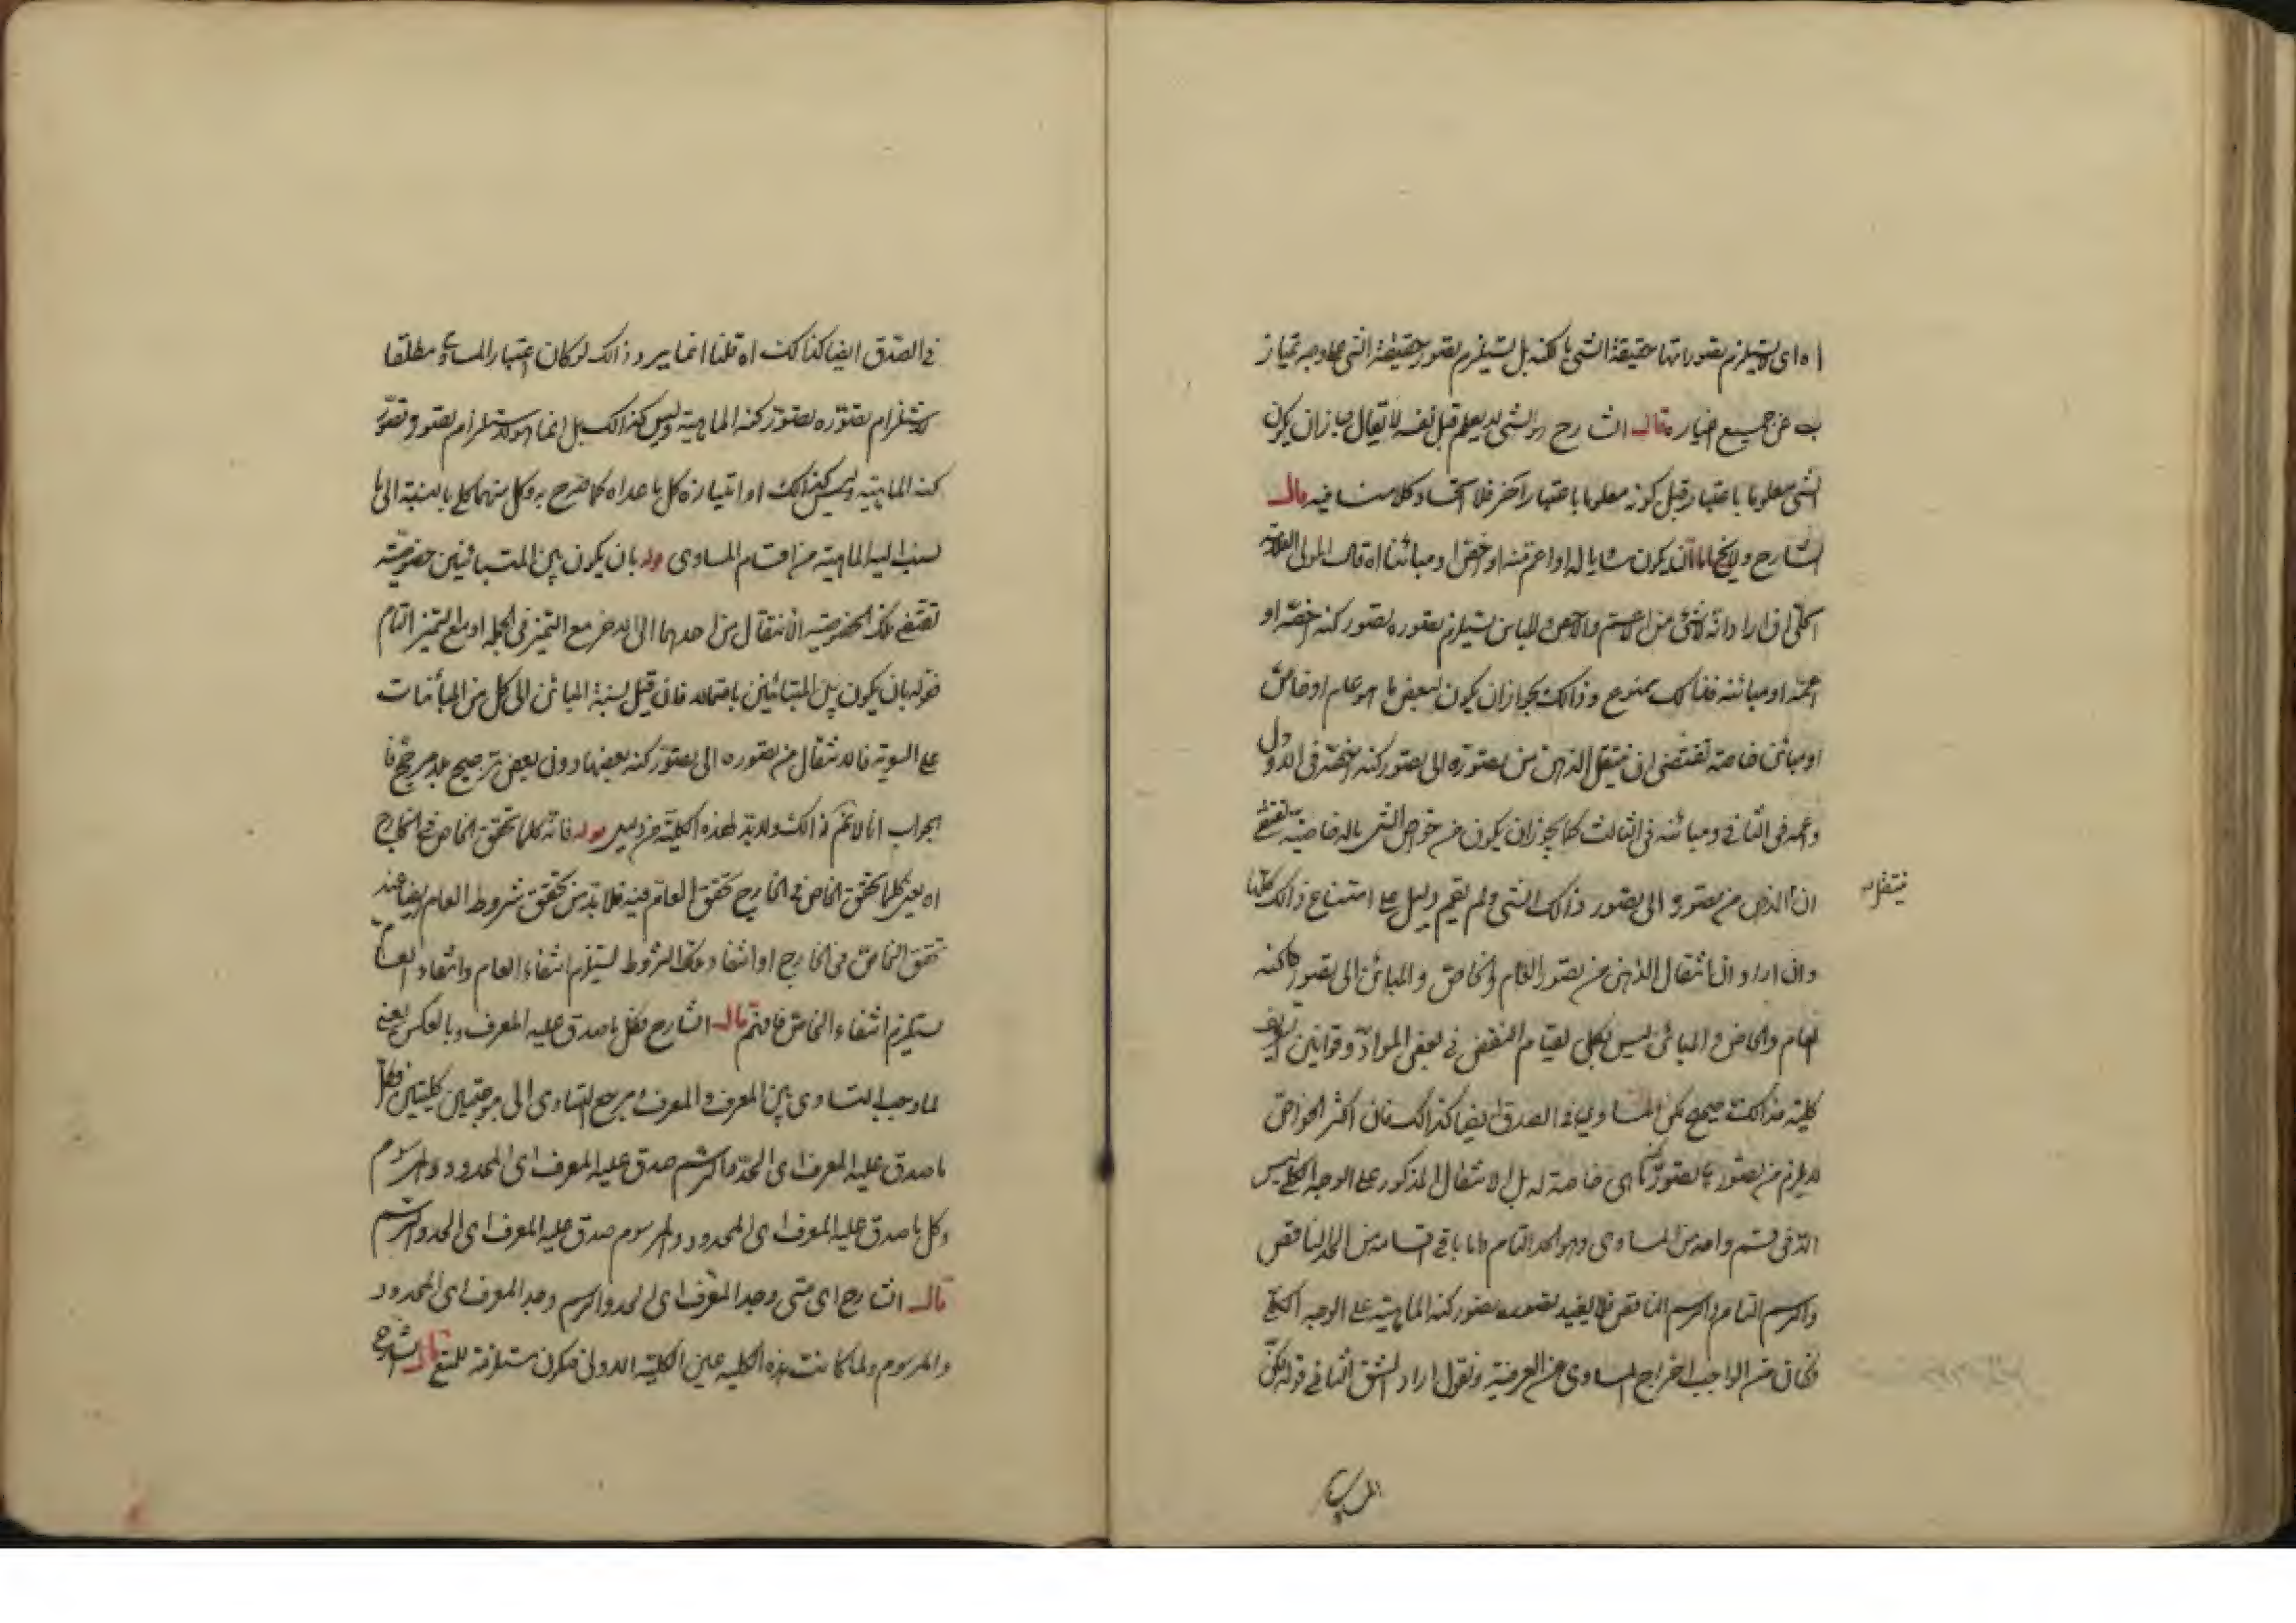 اه اى لا يستلزم تصوراتها حقيقة الشى بالكنه بل يستلزم تصور حقيقة الشى بوجه تمتاز
به عن جميع اغياره قال الشارح والشى لا يعلم قبل نفسه لا يقال جازان يكون
الشى معلوما باعتبار قبل كونه معلوما باعتبار آخر فلا اتحاد وكلامنا فيه قال
الشارح ولا يخ اما ان يكون مساويا له او اعم منه او اخص او مبائنا اه قال المولى العلامة
ان اراد انه لا شى من الاعم والاخص والمباين يستلزم تصوره تصور كنه اخصه او
اعمه او مبائنه فذالك ممنوع وذالك لجوازان يكون لبعض ما هو عام او خاص
او مبائن خاصة تقتضى ان ينتقل الذهن من تصوره الى تصور كنه اخصه فى الاول
واعمه فى الثانى ومبائنه فى الثالث كما يجوزان يكون من خواص الشى ماله خاصية تقتضى
ان الذهن من تصوره الى تصور ذالك الشى ولم يقم دليل على امتناع ذالك كليا
ينتقل
وان اراد ان انتقال الذهن من تصور العام والخاص والمبائن الى تصور كنه
العام والخاص والمبائن ليس بكلى لقيام النقض فى بعض المواد وقوانين تعريف
كلية فذالك صحيح لكن المساوى فى الصدق ايضا كذالك فان اكثر الخواص
لا يلزم من تصورها تصور كنه ما هى خاصة له بل الانتقال المذكور على الوجه الكلى ليس
الا فى قسم واحد من المساوى وهو الحد التام واما باقى اقسامه من الحد الناقص
والرسم التام والرسم الناقص فلا يفيد تصوره تصور كنه الماهية على الوجه الكلى
فكان من الواجب اخراج المساوى عن المعرفية ونقول اراد الشق الثانى قوله لكن
المساوى
فى الصدق ايضا كذالك اه قلنا انما يرد ذالك لو كان اعتبار المساوى مطلقا
لاستلزام تصوره تصور كنه الماهية وليس كذالك بل انما هو لاستلزام تصوره تصور
كنه الماهية وليس كذالك او امتيازه كل ما عداه كما صرح به وكل منهما كلى بالنسبة الى ما
نسب اليه الماهية من اقسام المساوى قوله بان يكون بين المتبائنين خصوصية
تقتضى تلك الخصوصية الانتقال من احدهما الى الاخر مع التميز فى الجملة او مع التميز التام
قوله بان يكون بين المتبائنين فان قيل نسبة المبائن الى كل من المبائنات
على السوية فالانتقال من تصوره الى تصور كنه بعضها دون بعض ترجيح بلا مرجح فا
لجواب انا لا نم ذالك ولا بد لهذه الكلية من دليل قوله فانه كلما تحقق الخاص فى الخارج
اه يعنى كلما تحقق الخاص فى الخارج تحقق العام فيه فلا بد من تحقق شروط العام ايضا عند
تحقق الخاص فى الخارج او انتفاء تلك الشروط يستلزم انتفاء العام وانتفاء العام
يستلزم انتفاء الخاص فافهم قال الشارح فكل ما صدق عليه المعرف وبالعكس يعنى
لما وجب التساوى بين المعرف والمعرف ومرجع التساوى الى موجبتين كليتين فكل
ما صدق عليه المعرف اى الحد والرسم صدق عليه المعرف اى المحدود والمرسوم
وكل ما صدق عليه المعرف اى المحدود والمرسوم صدق عليه المعرف اى الحد والرسم
قال الشارح اى متى وجد المعرف اى الحد والرسم وجد المعرف اى المحدود
والمرسوم ولما كانت هذه الكلية عين الكلية الاولى فيكون مستلزمة للمنع قال الشارح